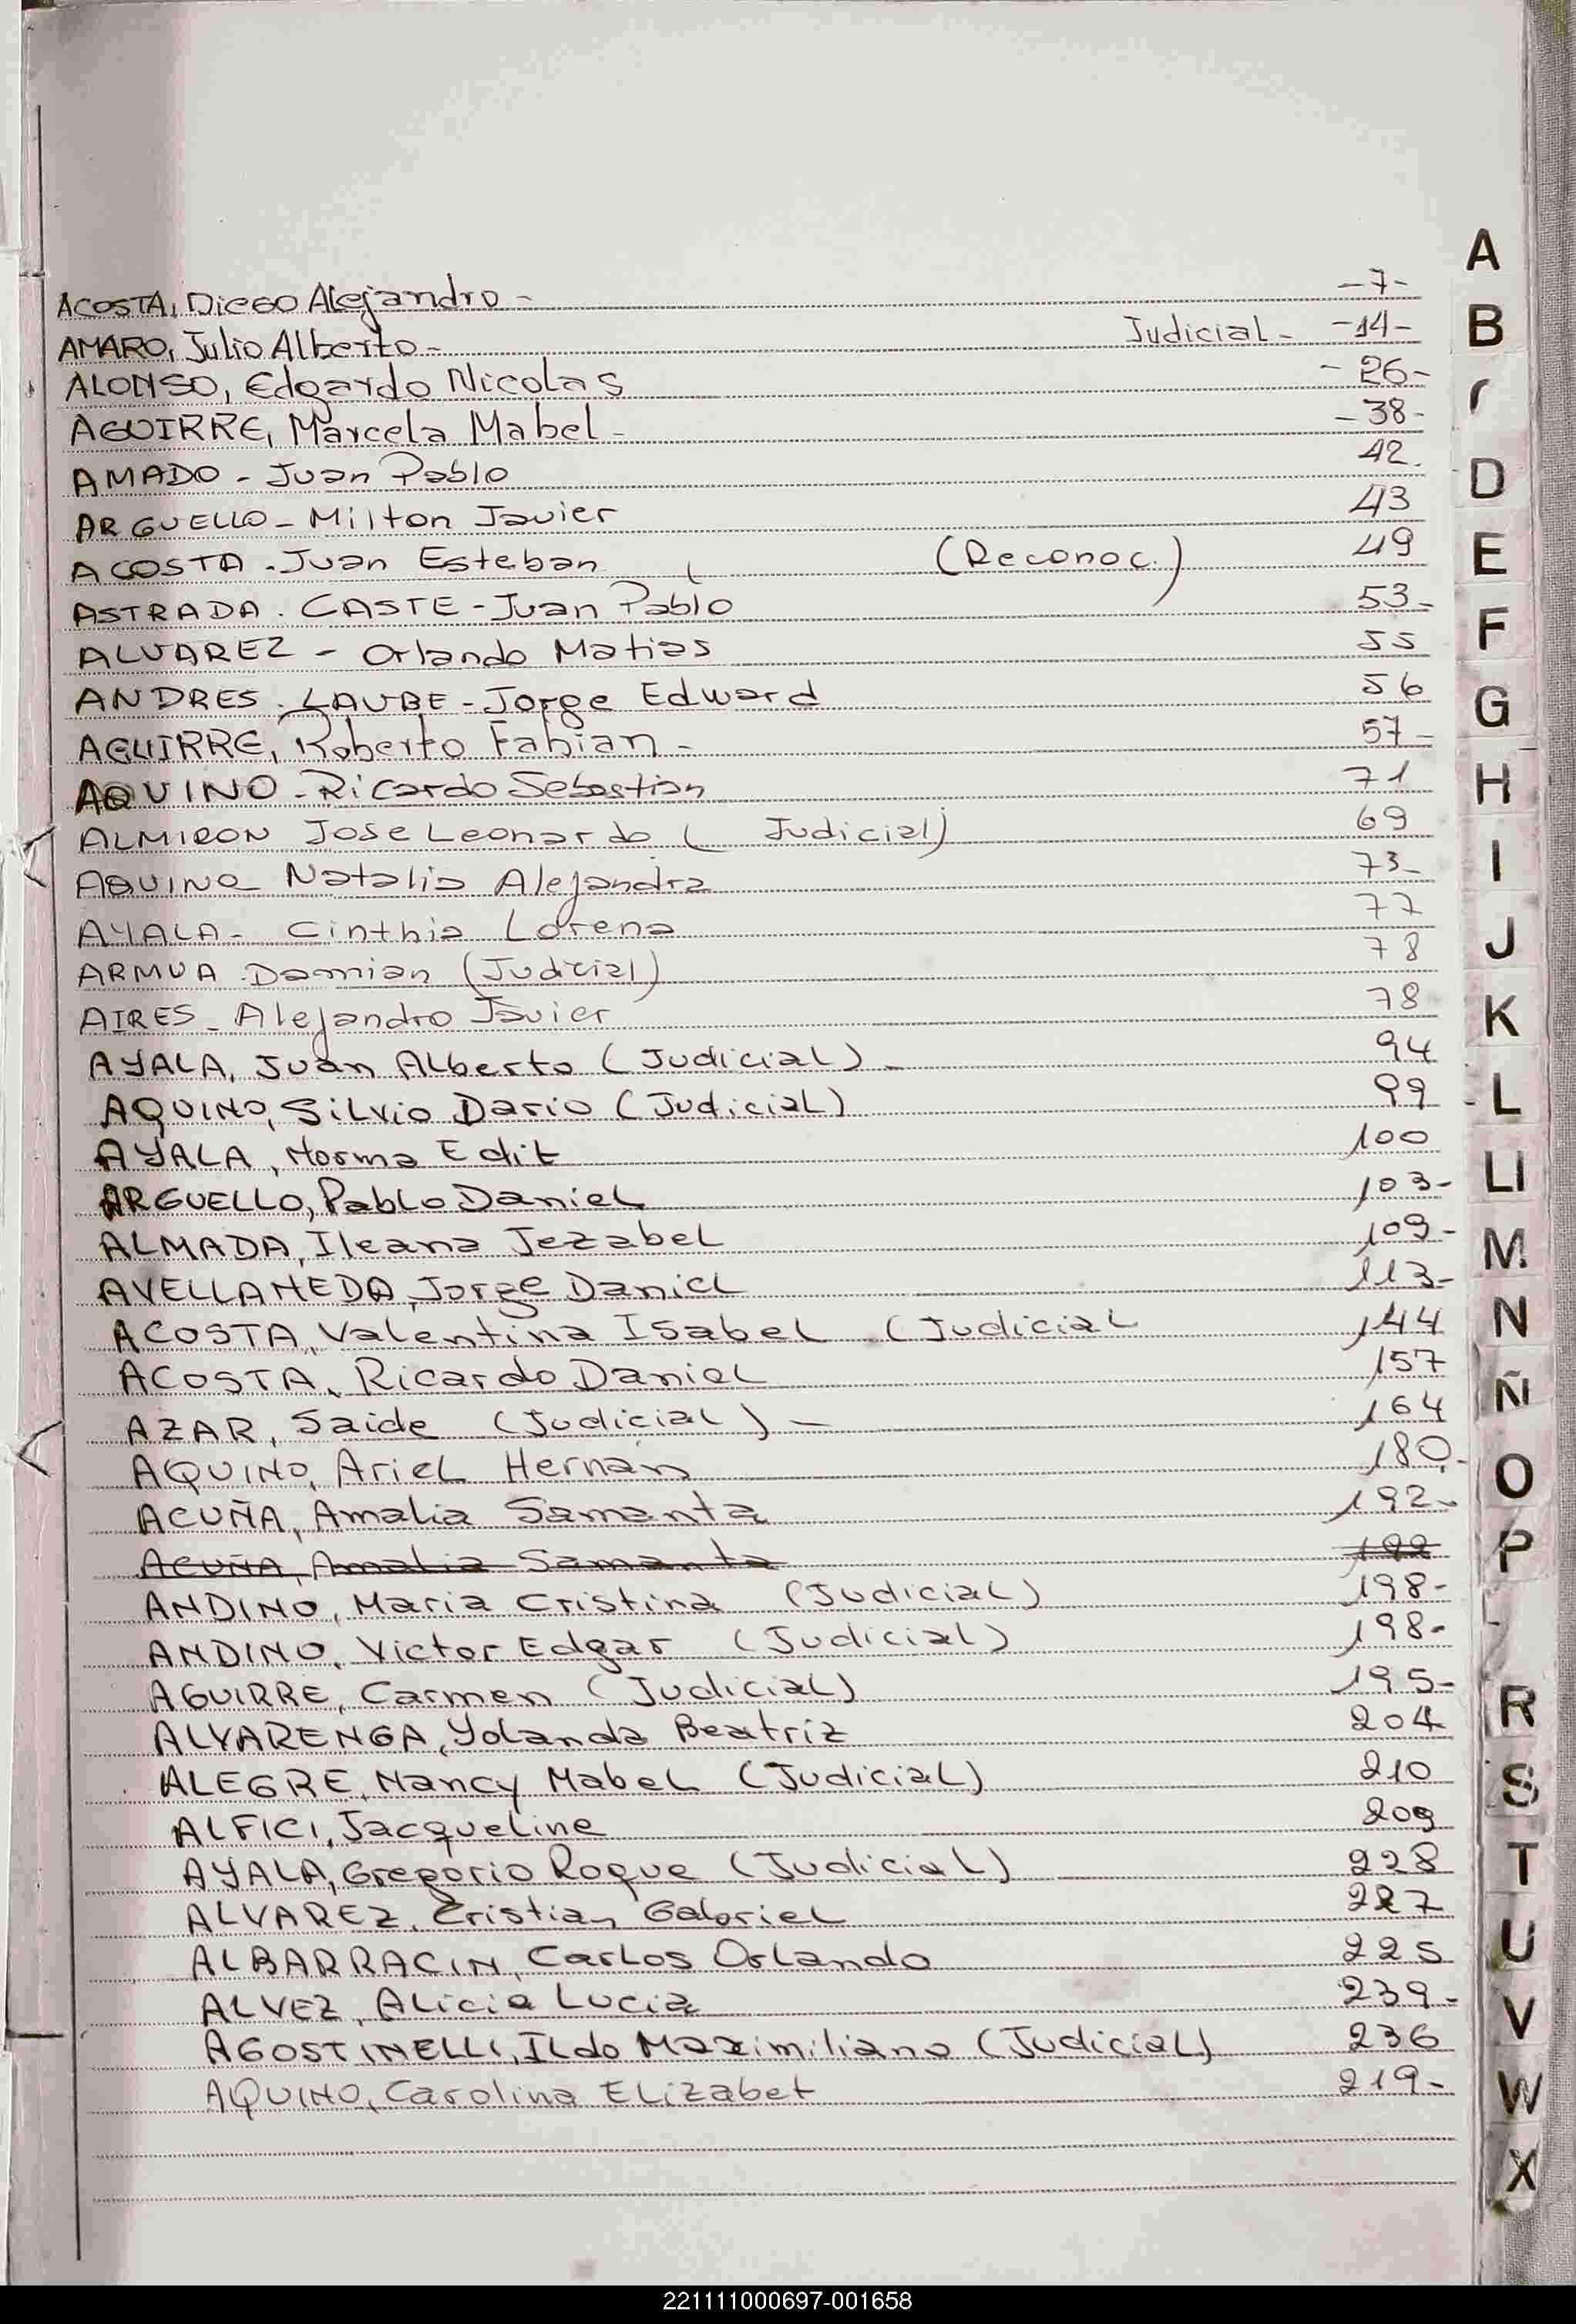 ACOSTA, Diego Alejandro - -7-
AMARO, Julio Alberto - Judicial - -14-
ALONSO, Edgardo Nicolas - 26-
AGUIRRE, Marcela Mabel - -38-
AMADO - Juan Pablo 42.
ARGUELLO - Milton Javier 43
ACOSTA - Juan Esteban (Reconoc.) 49
ASTRADA . CASTE - Juan Pablo 53-
ALVAREZ - Orlando Matias 55
ANDRES . LAUBE - Jorge Edward 56
AGUIRRE, Roberto Fabian - 57-
AQUINO - Ricardo Sebastian 71
ALMIRON Jose Leonardo ( Judicial) 69
AQUINO Natalia Alejandra 73-
AYALA - Cinthia Lorena 77
ARMUA Damian (Judicial) 78
AIRES - Alejandro Javier 78
AYALA, Juan Alberto (Judicial) - 94
AQUINO, Silvio Dario (Judicial) 99
AYALA, Norma Edit 100
ARGUELLO, Pablo Daniel 103-
ALMADA, Ileana Jezabel 109-
AVELLANEDA, Jorge Daniel 113-
ACOSTA, Valentina Isabel (Judicial 144
ACOSTA, Ricardo Daniel 157
AZAR, Saide (Judicial) - 164
AQUINO, Ariel Hernán 180-
ACUÑA, Amalia Samanta 192-
ACUÑA, Amalia Samanta 192
ANDINO, Maria Cristina (Judicial) 198-
ANDINO, Victor Edgar (Judicial) 198-
AGUIRRE, Carmen (Judicial) 195-
ALVARENGA, Yolanda Beatriz 204
ALEGRE, Nancy Mabel (Judicial) 210
ALFICI, Jacqueline 209
AYALA, Gregorio Roque (Judicial) 228
ALVAREZ, Cristian Gabriel 227
ALBARRACIN, Carlos Orlando 225
ALVEZ, Alicia Lucia 239-
AGOSTINELLI, Ildo Maximiliano (Judicial) 236
AQUINO, Carolina Elizabet 219-
A
B
D
E
F
G
H
I
J
K
L
Ll
M
N
Ñ
O
P
R
S
T
U
V
W
X
221111000697-001658